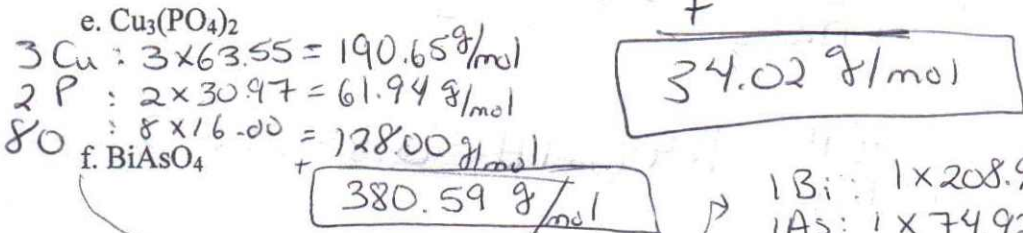 e. Cu₃(PO₄)₂
3 Cu : 3×63.55 = 190.65 g/mol
2 P : 2×30.97 = 61.94 g/mol
8O : 8×16.00 = 128.00 g/mol
+
380.59 g/mol
f. BiAsO₄
+
34.02 g/mol
1 Bi : 1×208.9
1 As : 1×74.92